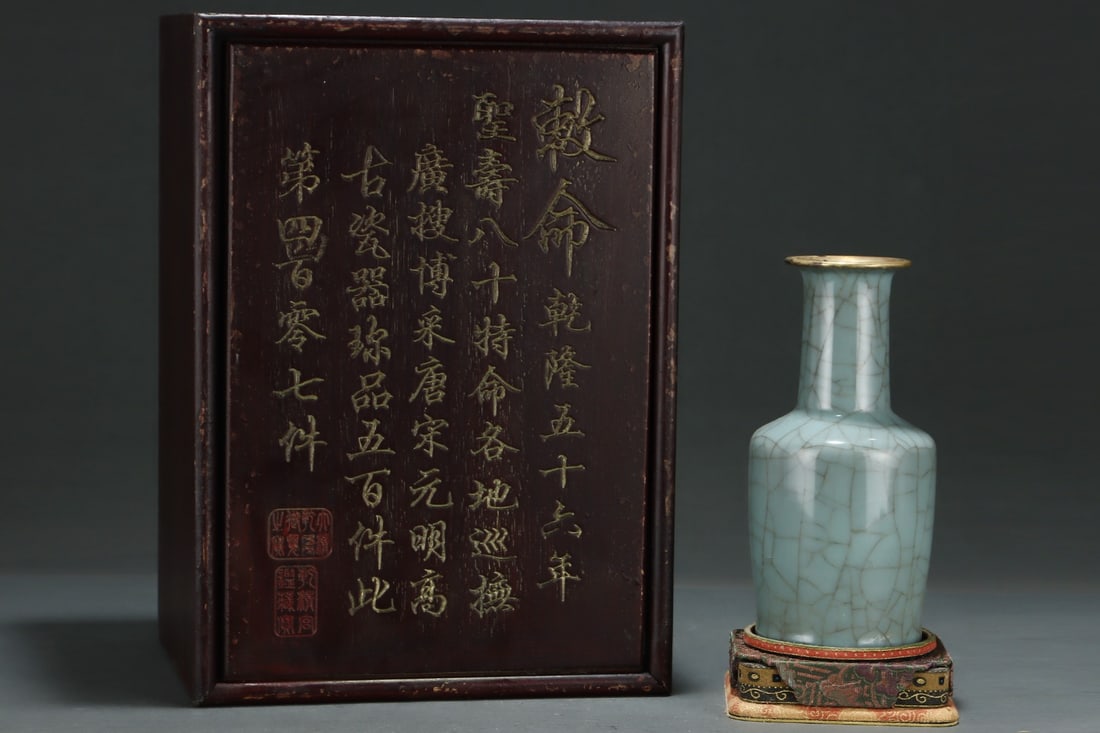 敕命 乾隆五十六年
聖壽八十特命各地巡撫
廣搜博采唐宋元明高
古瓷器珎品五百件此
第四百零七件